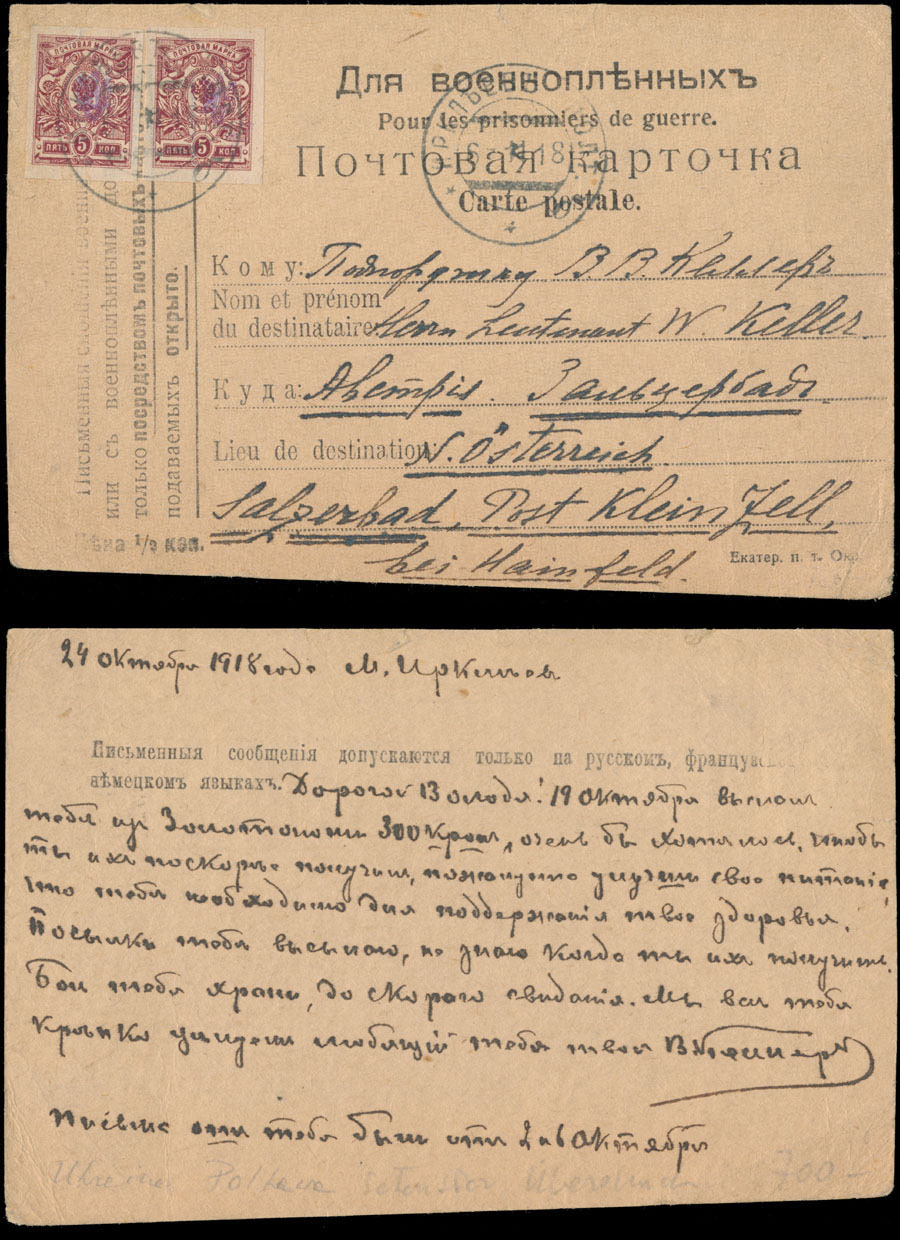 ПОЧТОВАЯ МАРКА ПОЧТОВАЯ МАРКА
ПЯТЬ 5 КОП. ПЯТЬ 5 КОП.
Для военноплѣнныхъ
Pour les prisonniers de guerre.
Почтовая карточка
Carte postale.
18
Кому: В. В. Келлеръ
Nom et prénom
du destinataire: Herrn Leutenant W. Keller
Куда: Австрія. Зальцербадъ.
Lieu de destination: N. Österreich
Salzerbad, Post Klein Zell,
bei Hainfeld.
Письменныя сношенія
или съ военноплѣнными
только посредствомъ почтовыхъ
подаваемыхъ открыто.
Цѣна 1/2 коп.
Екатер. п. т. Окр.
24 октября 1918 года М.
Письменныя сообщенія допускаются только на русскомъ,
нѣмецкомъ языкахъ. Дорогой Володя! 19 октября выслал
тебѣ из Золотоноши 300 крон, очень бы хотелось, чтобы
ты ихъ поскорѣе получил, пожалуйста улучши свое питаніе,
что тебѣ необходимо для поддержанія твое здоровья.
Посылки тебѣ высылаю, не знаю когда ты ихъ получишь.
Бог тебя храни, до скораго свиданія. Мы всѣ тебя
крѣпко цѣлуем любящій тебя твой
от тебя были от 2 и 6 октября
Ukraine Poltava
700 -